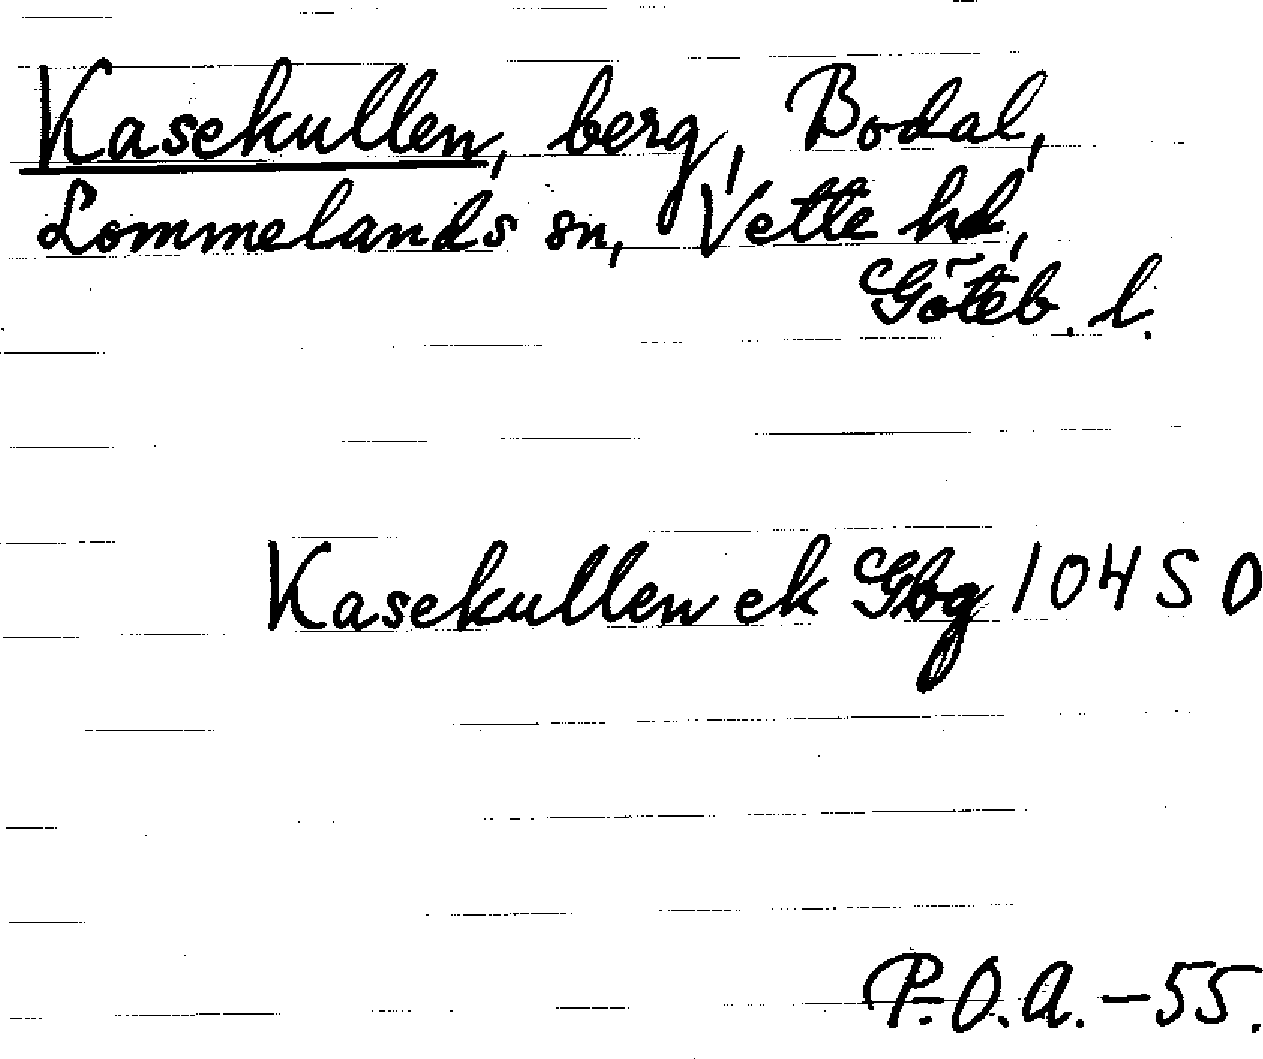 Kasekullen, berg, Bodal,
Lommelands sn, Vette hd,
Göteb. l.
Kasekullen ek Gbg 104 S O
P.O.A. -55.